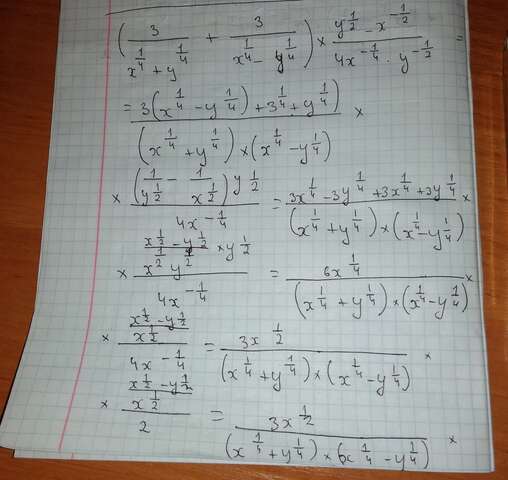 (3/(x^(1/4) + y^(1/4)) + 3/(x^(1/4) - y^(1/4))) × (y^(1/2) - x^(-1/2))/(4x^(-1/4) · y^(-1/2)) =
= (3(x^(1/4) - y^(1/4)) + 3^(1/4) + y^(1/4)))/((x^(1/4) + y^(1/4)) × (x^(1/4) - y^(1/4))) ×
× ((1/y^(1/2) - 1/x^(1/2)) y^(1/2))/(4x^(-1/4)) = (3x^(1/4) - 3y^(1/4) + 3x^(1/4) + 3y^(1/4))/((x^(1/4) + y^(1/4)) × (x^(1/4) - y^(1/4))) ×
× ((x^(1/2) - y^(1/2))/(x^(1/2) y^(1/2)) × y^(1/2))/(4x^(-1/4)) = 6x^(1/4)/((x^(1/4) + y^(1/4)) × (x^(1/4) - y^(1/4))) ×
× ((x^(1/2) - y^(1/2))/x^(1/2))/(4x^(-1/4)) = 3x^(1/2)/((x^(1/4) + y^(1/4)) × (x^(1/4) - y^(1/4))) ×
× ((x^(1/2) - y^(1/2))/x^(1/2))/2 = 3x^(1/2)/((x^(1/4) + y^(1/4)) × (x^(1/4) - y^(1/4))) ×